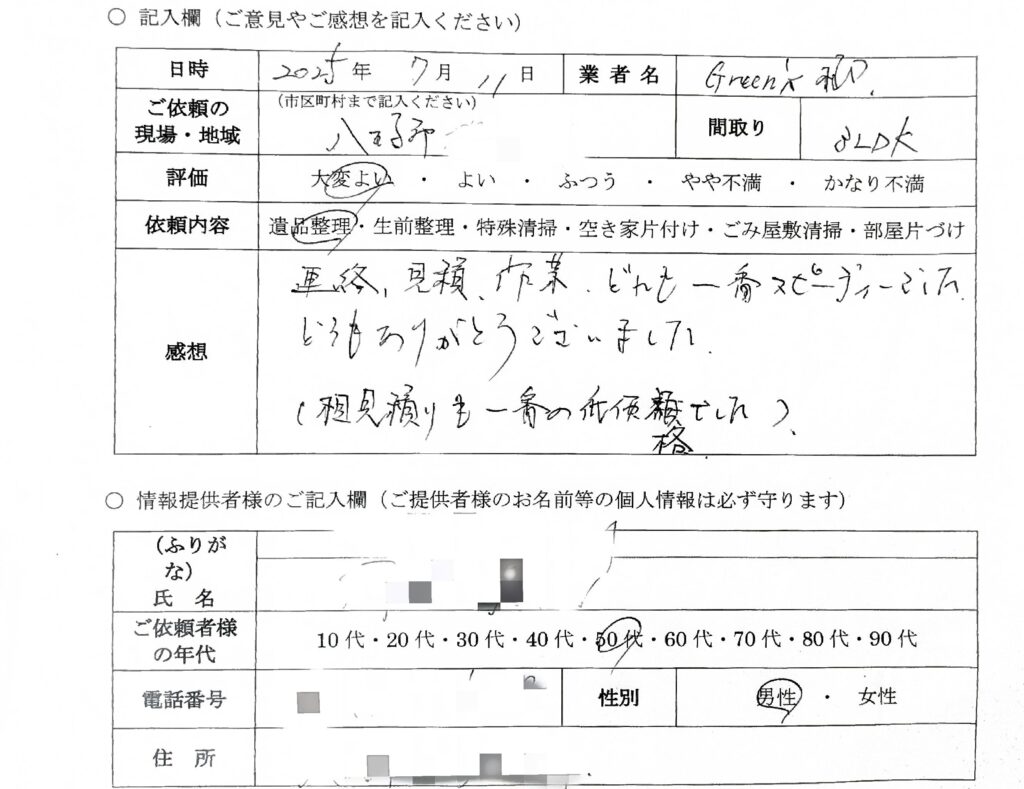 ○ 記入欄（ご意見やご感想を記入ください）
日時 2025年 7月 11日 業者名 Green's
ご依頼の現場・地域 （市区町村まで記入ください） 八王子市 間取り 8LDK
評価 大変よい ・ よい ・ ふつう ・ やや不満 ・ かなり不満
依頼内容 遺品整理・生前整理・特殊清掃・空き家片付け・ごみ屋敷清掃・部屋片づけ
感想
連絡、見積、作業、どれも一番スピーディーでした。
どうもありがとうございました。
（相見積りも一番の低価格でした）。
○ 情報提供者様のご記入欄（ご提供者様のお名前等の個人情報は必ず守ります）
（ふりがな）
氏 名
ご依頼者様の年代 10代・20代・30代・40代・50代・60代・70代・80代・90代
電話番号 性別 男性 ・ 女性
住 所